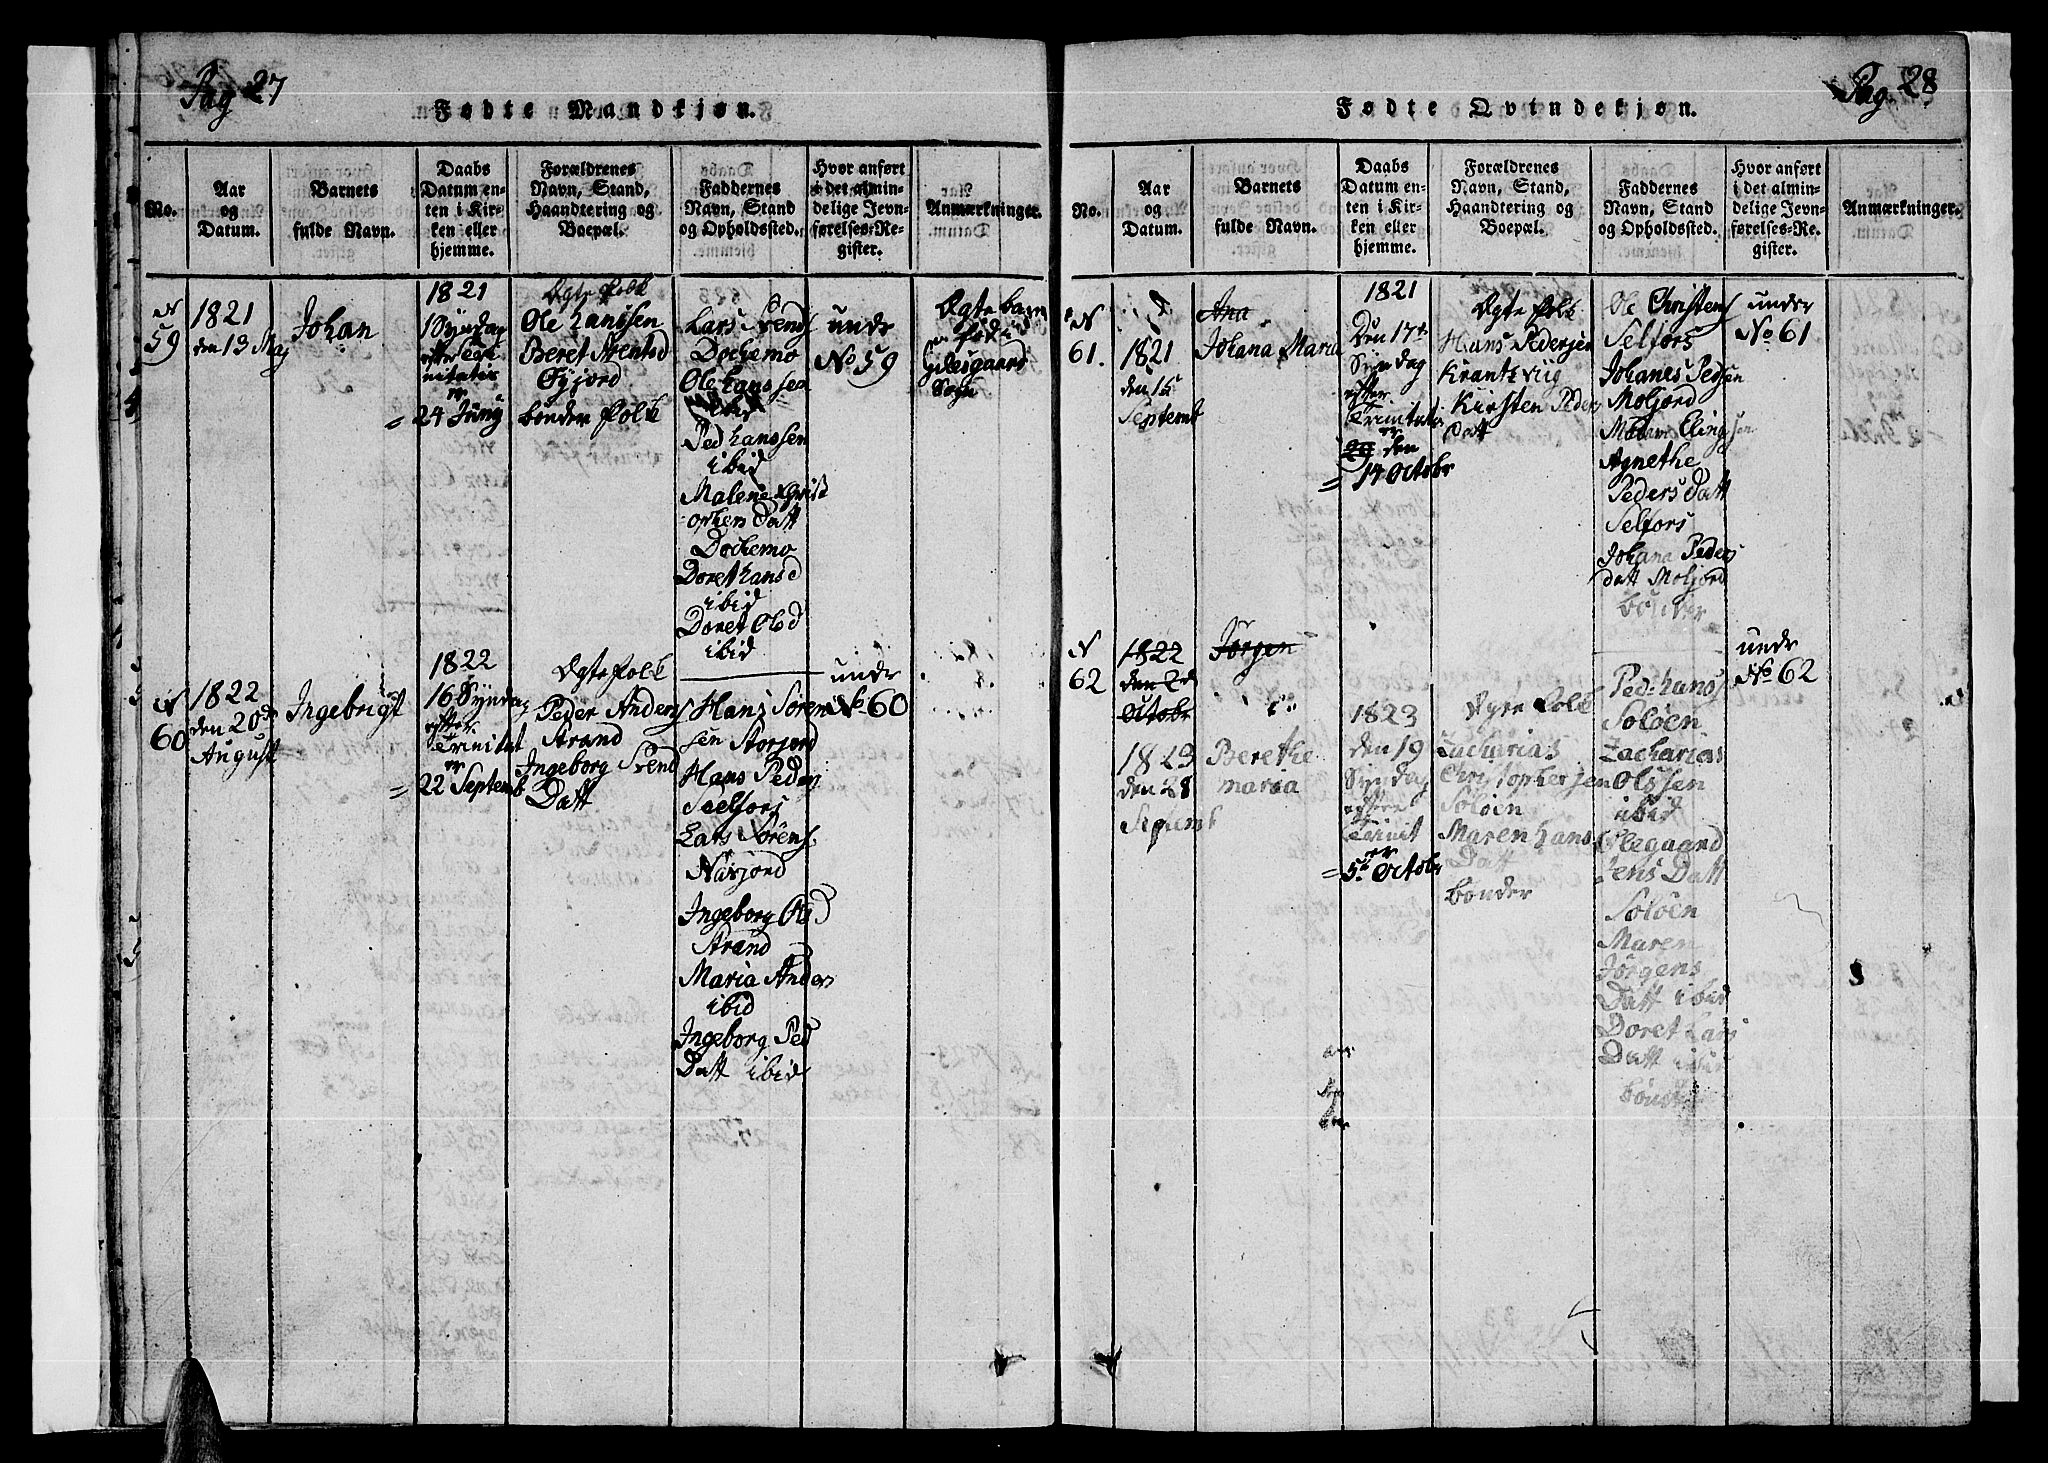 Pag 27
Fødte Mandkjøn.
No.
Aar
og
Datum.
Barnets
fulde Navn.
Daabs
Datum en-
ten i Kir-
ken eller
hjemme.
Forældrenes
Navn, Stand,
Haandtering og
Boepæl.
Faddernes
Navn, Stand
og Opholdssted.
Hvor anført
i det almin-
delige Jevn-
førelses-Re-
gister.
Anmærkninger.
N
59
1821
den 13 Maj
Johan
1821
1 Syndag
efter
nitatis
er
= 24 Juny
Ægte folk
Ole Hanssen
Beret
bønder folk
Lars Svends
Dochemo
Ole Hanssen
ibid
Ped Hanssen
ibid
Malene Christ
=ophers Datt
Dochemo
Doret Hansd
ibid
Doret Olsd
ibid
undr
No 59
Ægte barn
født i
Sogn
N
60
1822
den 20de
August
Ingebrigt
1822
16 Syndag
efter
Trinitat
er
= 22 Septemb
Ægte folk
Peder Anders
Strand
Ingeborg Svend
Datt
Hans Søren
sen Storjord
Hans Peders
Seelfors
Lars Sørens
Ingeborg Olsd
Strand
Maria Anders
ibid
Ingeborg Ped
Datt ibid
undr
No 60
Pag. 28
Fødte Qvindekjøn.
No.
Aar
og
Datum.
Barnets
fulde Navn.
Daabs
Datum en-
ten i Kir-
ken eller
hjemme.
Forældrenes
Navn, Stand,
Haandtering og
Boepæl.
Faddernes
Navn, Stand
og Opholdssted.
Hvor anført
i det almin-
delige Jevn-
førelses-Re-
gister.
Anmærkninger.
N
61.
1821
den 15
Septemb
Ana
Johana Maria
1821
Den 17de
Syndag
efter
Trinitatis
er
den
= 14 Octobr
Ægte folk
Hans Pedersen
Krantsvig
Kirsten Peders
Datt
Ole Christens
Selfors
Johanes Pedsen
Moljord
Eling
sen
Agnethe
Peders Datt
Selfors
Johana Peders
datt Moljord
bønder
under
No 61
N
62
1822
den 2d
Octobr
1823
den 28
Septemb
Jørgen
Berethe
maria
1823
den 19
Syndag
efter
Trinit
er
= 5te Octobr
Ægte folk
Zacharias
Christophersen
Soløen
Maren Hans
Datt
bønder
Ped: Hans
Soløen
Zacharias
Olssen
ibid
Olegaard
Jens Datt
Soløen
Maren
Jørgens
Datt ibid
Doret Lars
Datt ibid
bønder
undr
No. 62